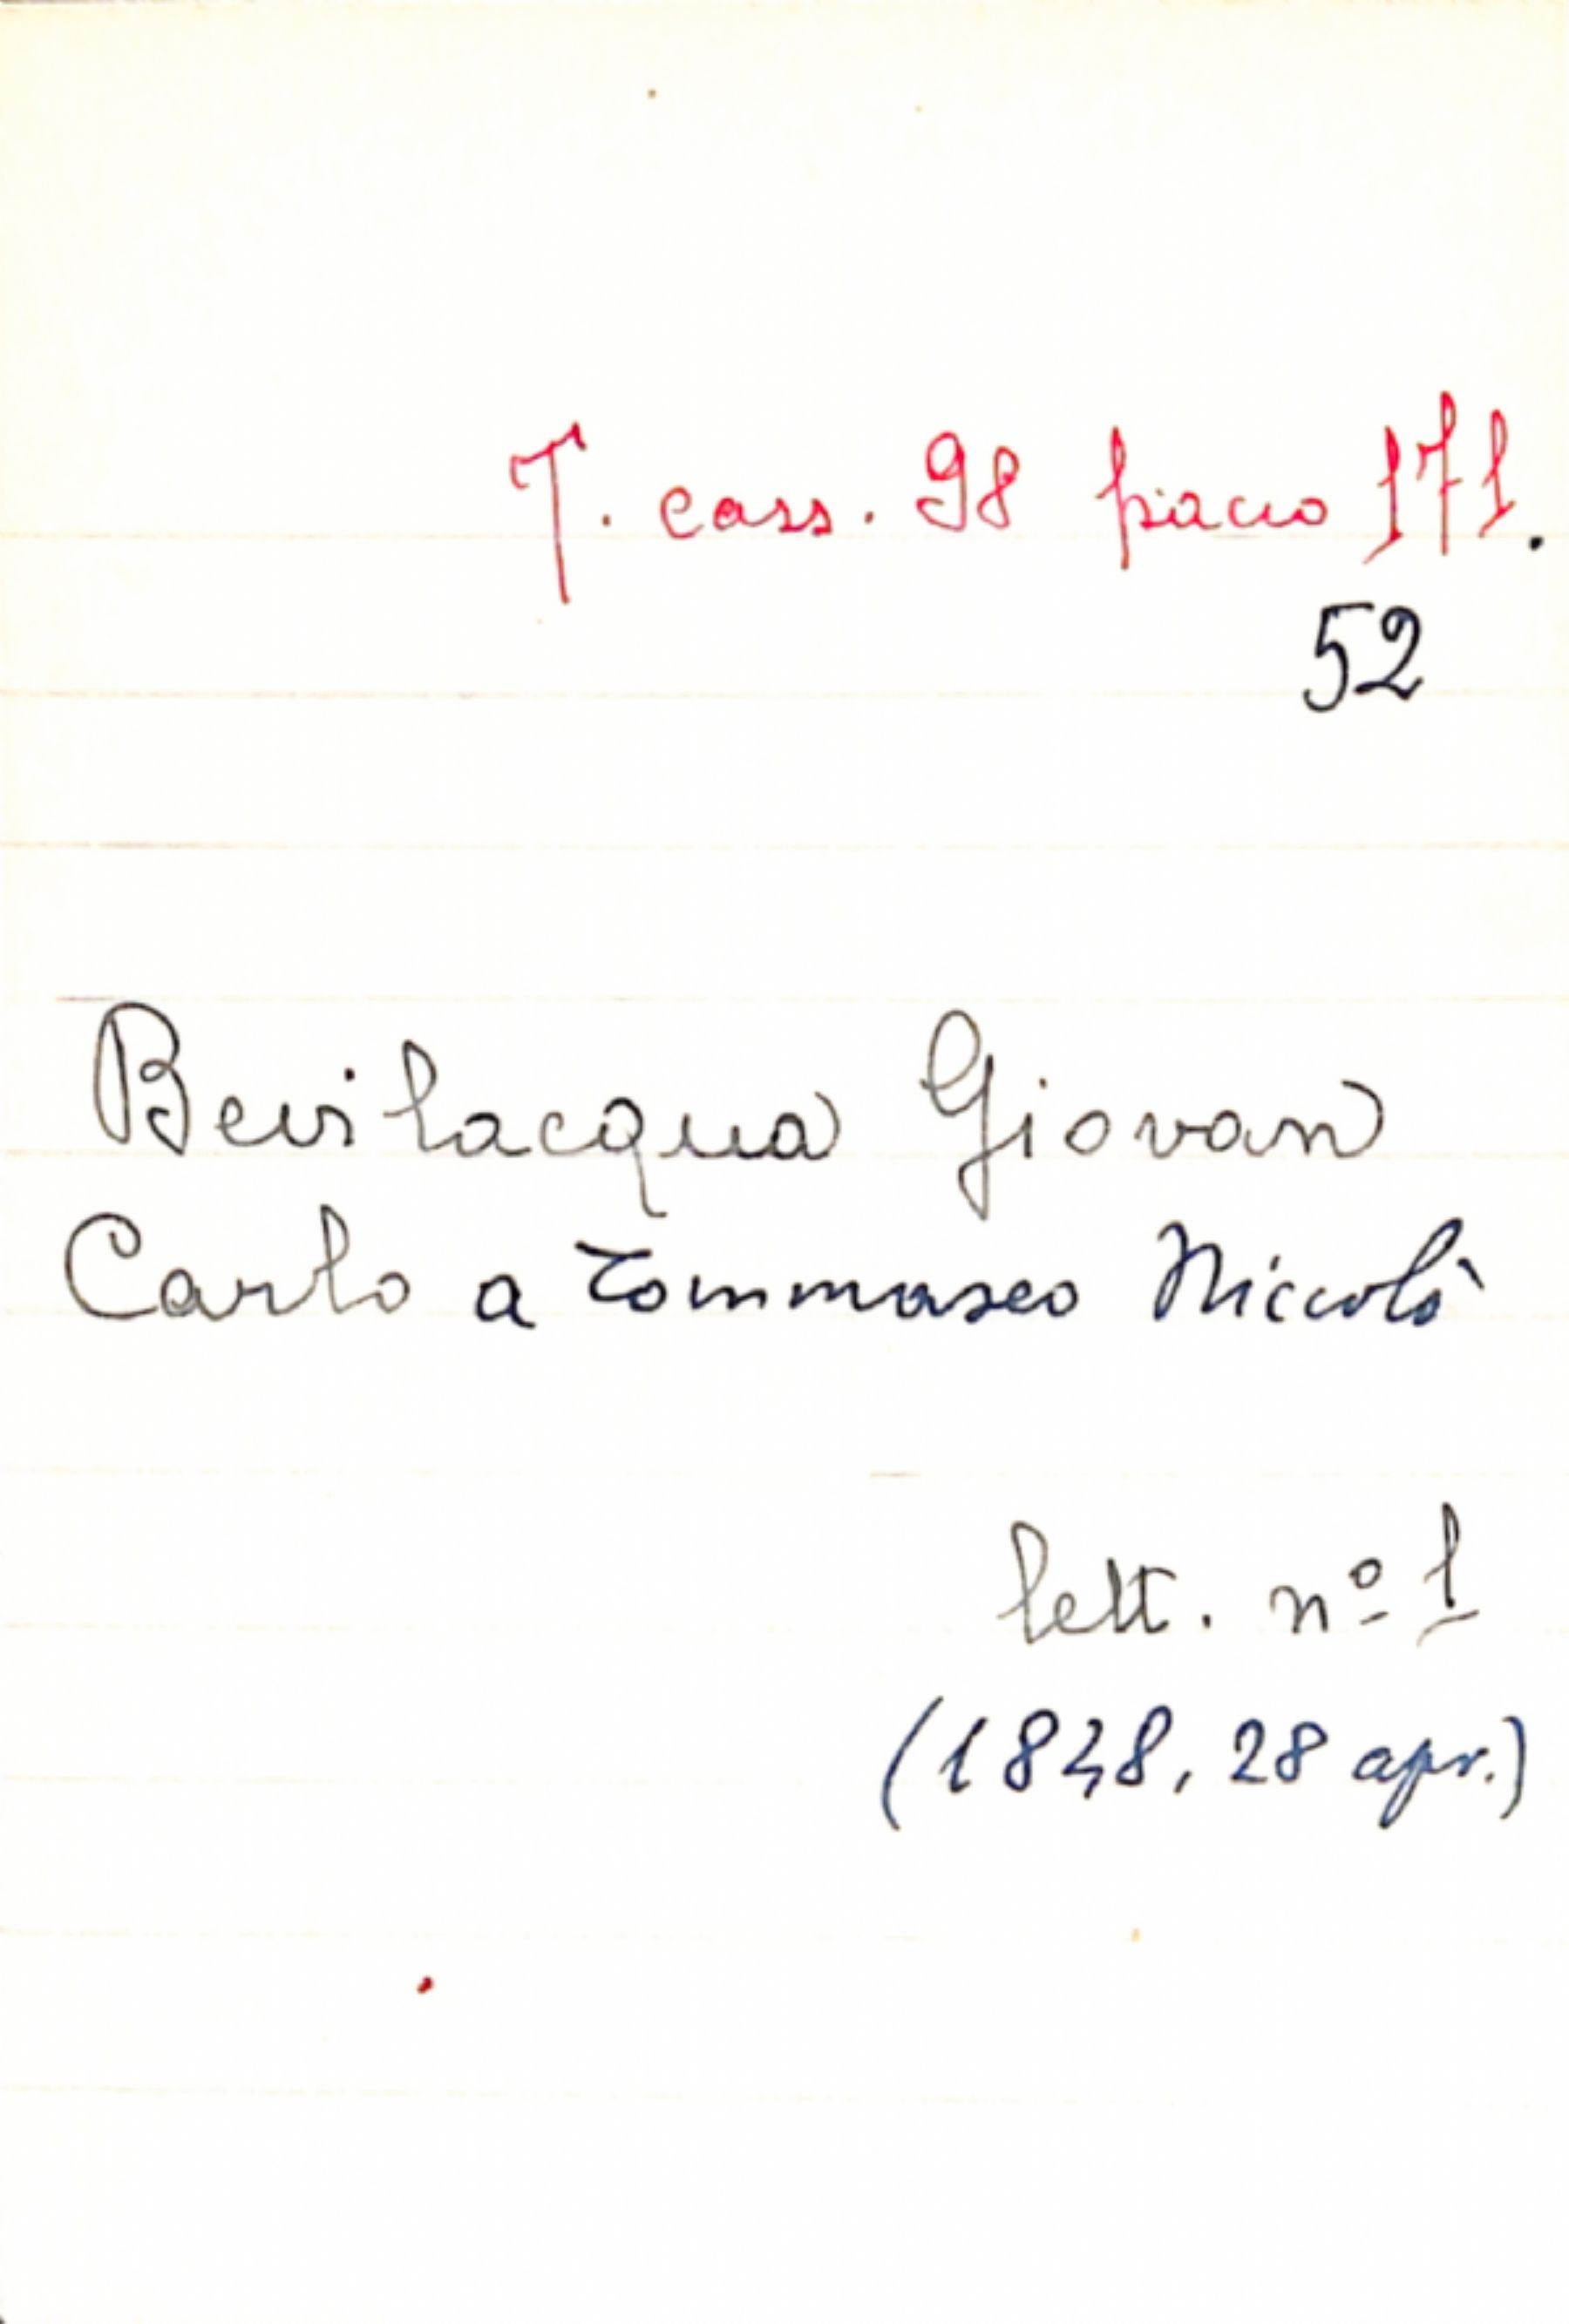 T. cass. 98 pacco 171.
52
Bevilacqua Giovan
Carlo a Tommaseo Niccolò
lett. nº 1
(1848, 28 apr.)